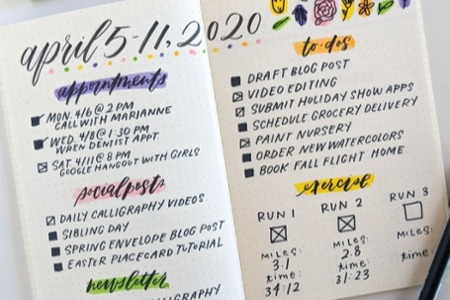 april 5-11, 2020
appointments
MON. 4/6 @ 2 PM
CALL WITH MARIANNE
WED. 4/8 @ 1:30 PM
WREN DENTIST APPT.
SAT 4/11 @ 8 PM
GOOGLE HANGOUT WITH GIRLS
social posts
DAILY CALLIGRAPHY VIDEOS
SIBLING DAY
SPRING ENVELOPE BLOG POST
EASTER PLACECARD TUTORIAL
newsletter
CALLIGRAPHY
to-dos
DRAFT BLOG POST
VIDEO EDITING
SUBMIT HOLIDAY SHOW APPS
SCHEDULE GROCERY DELIVERY
PAINT NURSERY
ORDER NEW WATERCOLORS
BOOK FALL FLIGHT HOME
exercise
RUN 1 RUN 2 RUN 3
MILES: MILES: MILES:
3.1 2.8
time: time: time:
34:12 31:23